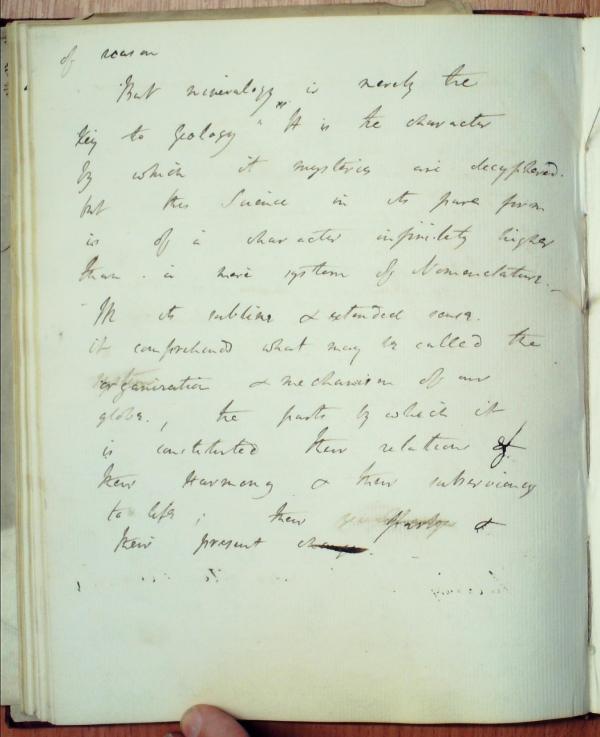 of reason
But mineralogy is merely the
key to Geology " It is the character
by which it mysteries are decyphered.
but this Science in its pure form
is of a character infinitely higher
than a mere system of Nomenclature.
In its sublime & extended sense.
it comprehends what may be called the
organization & mechanism of our
globe, the parts by which it
is constituted their relations &
their Harmony & their subserviency
to life; their &
their present